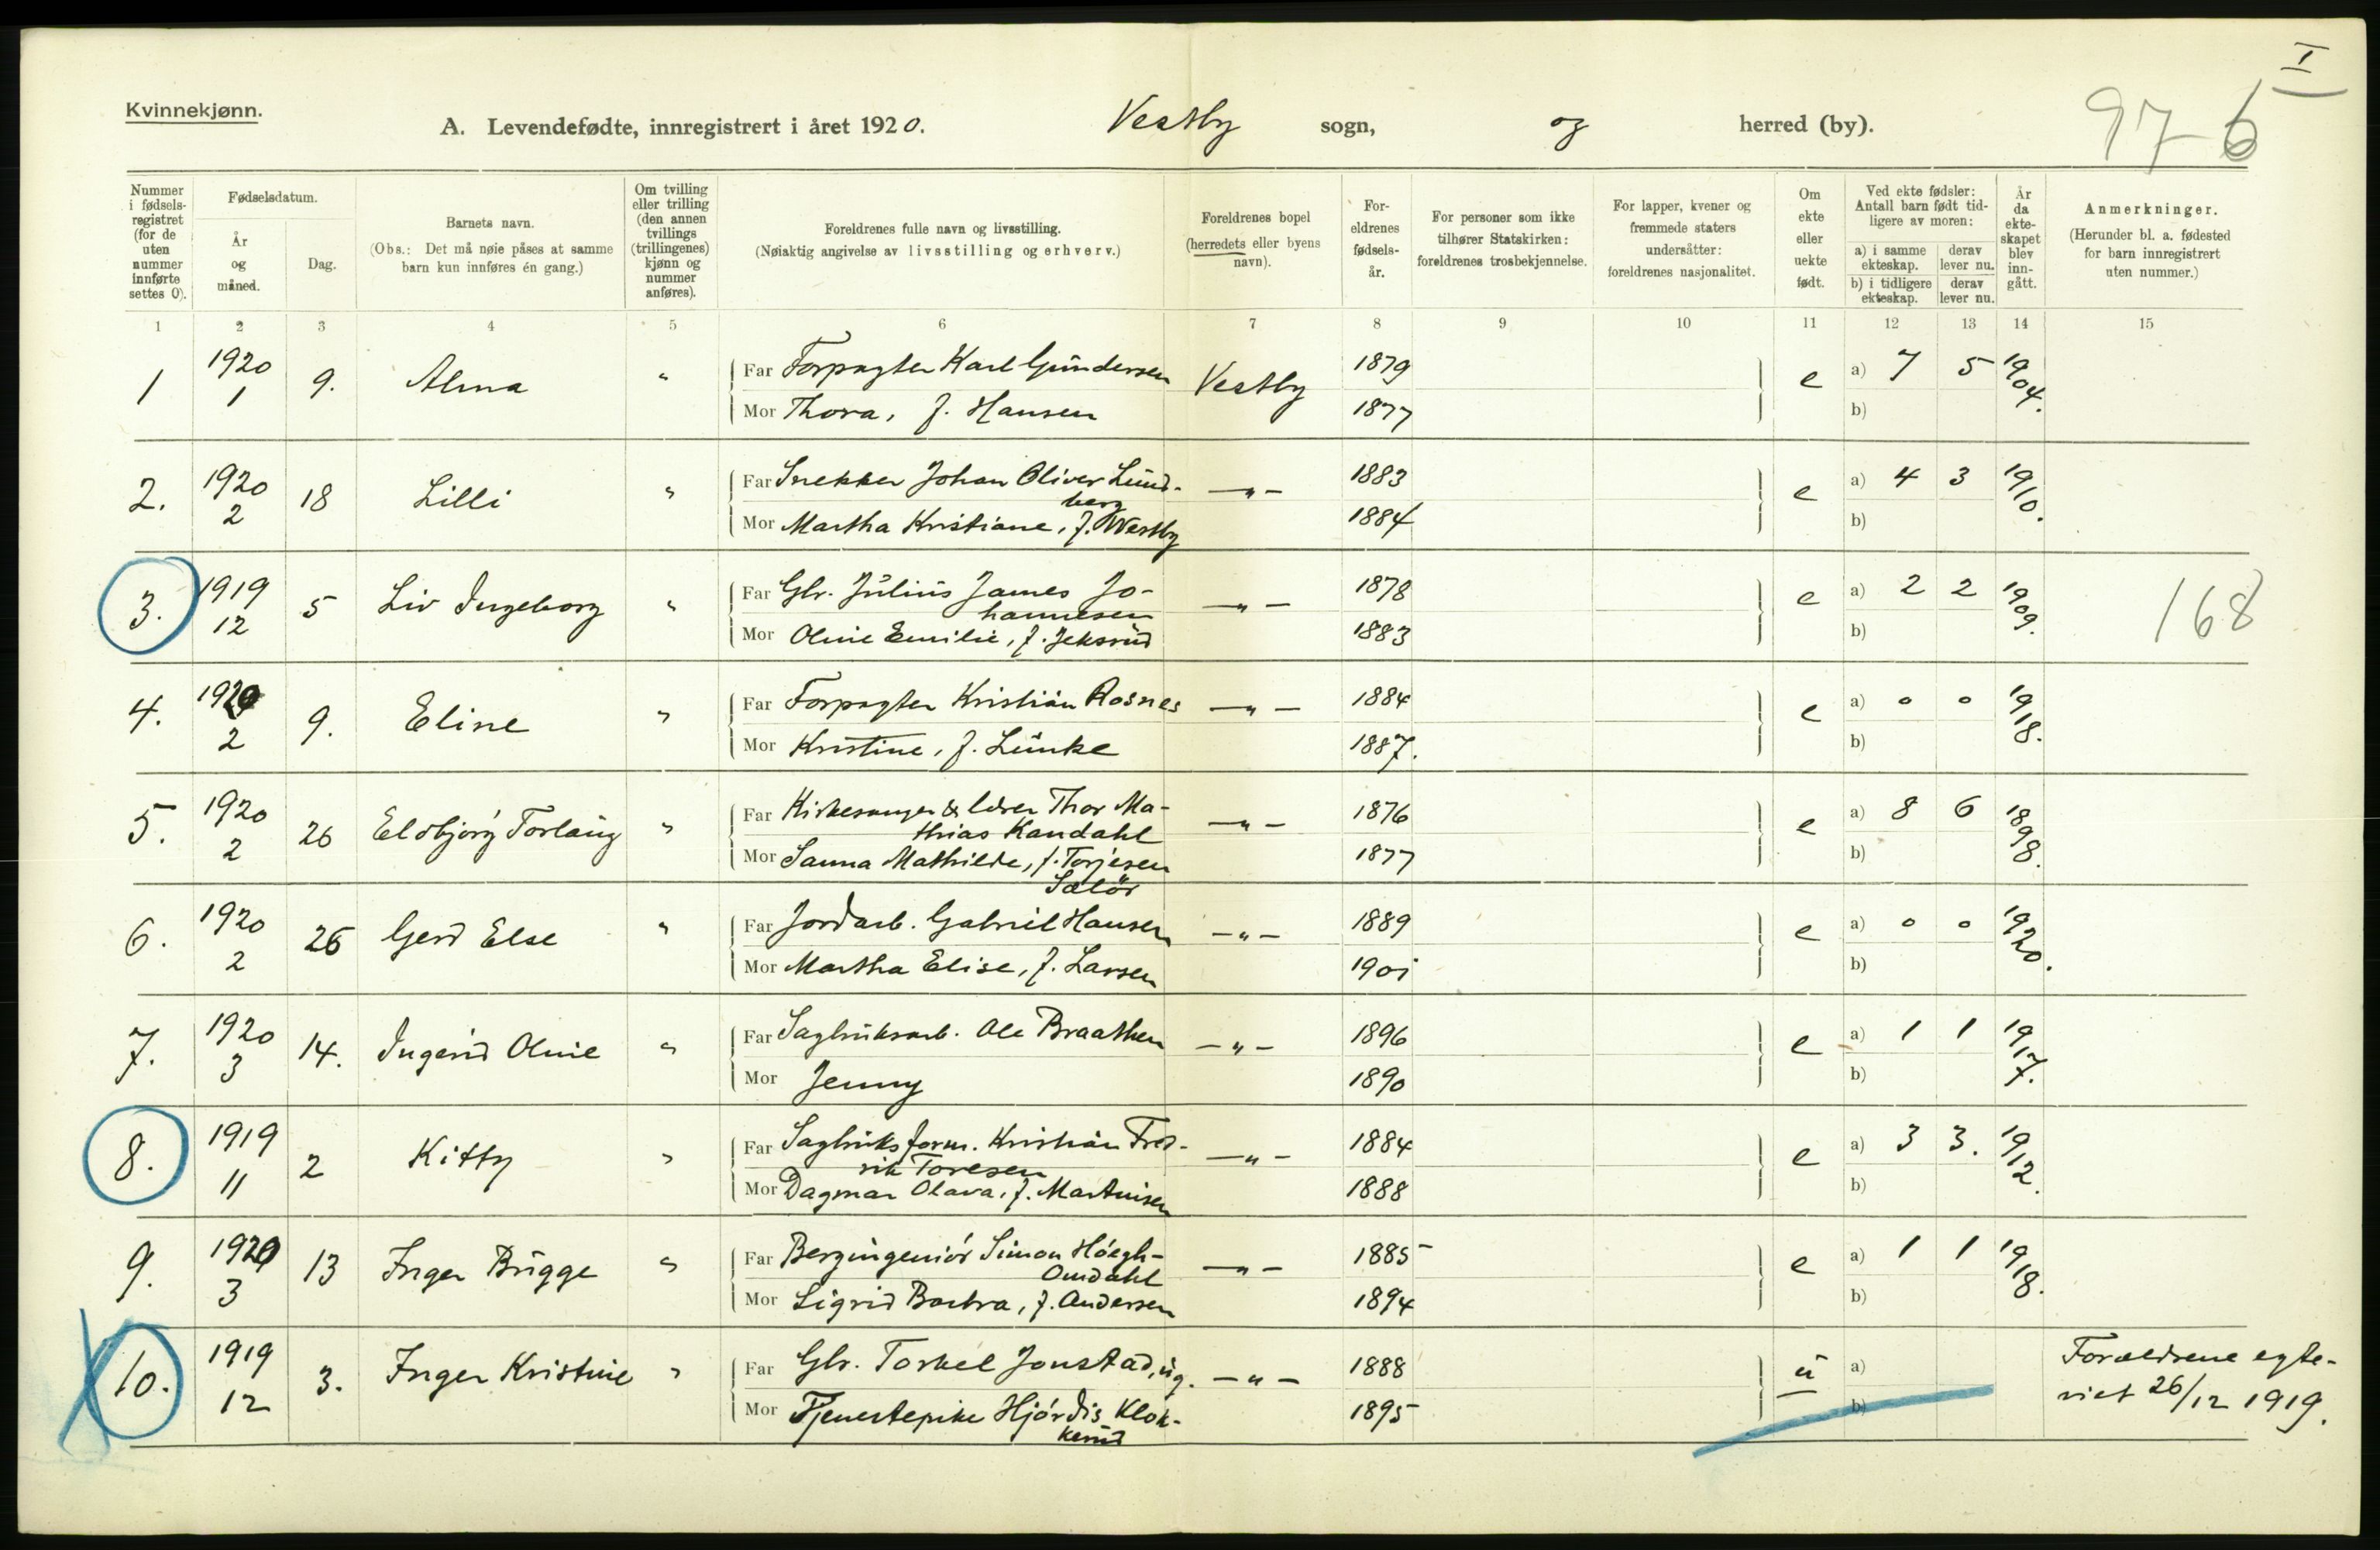 I
Kvinnekjønn.
A. Levendefødte, innregistrert i året 1920. Vestby sogn, og herred (by). 97 6
Nummer i fødselsregistret (for de uten nummer innførte settes 0).
Fødselsdatum.
År og måned.
Dag.
Barnets navn.
(Obs.: Det må nøie påses at samme barn kun innføres én gang.)
Om tvilling eller trilling (den annen tvillings (trillingenes) kjønn og nummer anføres).
Foreldrenes fulle navn og livsstilling.
(Nøiaktig angivelse av livsstilling og erhverv.)
Foreldrenes bopel (herredets eller byens navn).
Foreldrenes fødselsår.
For personer som ikke tilhører Statskirken: foreldrenes trosbekjennelse.
For lapper, kvener og fremmede staters undersåtter: foreldrenes nasjonalitet.
Om ekte eller uekte født.
Ved ekte fødsler: Antall barn født tidligere av moren:
a) i samme ekteskap. derav lever nu.
b) i tidligere ekteskap. derav lever nu.
År da ekteskapet blev inngått.
Anmerkninger.
(Herunder bl. a. fødested for barn innregistrert uten nummer.)
1 2 3 4 5 6 7 8 9 10 11 12 13 14 15
1 1920 1 9. Alma " Far Forpagter Karl Gundersen Vestby 1879 e a) 7 5 1904.
Mor Thora, f. Hansen 1877 b)
2. 1920 2 18 Lilli " Far Snekker Johan Oliver Lundberg —"— 1883 e a) 4 3 1910.
Mor Martha Kristiane, f. Westby 1884 b)
3. 1919 12 5 Liv Ingeborg " Far Gbr. Julius James Johannesen —"— 1878 e a) 2 2 1909. 168
Mor Oline Emilie, f. Jeksrud 1883 b)
4. 1920 2 9. Eline " Far Forpagter Kristian Rosnes —"— 1884 e a) 0 0 1918.
Mor Kristine, f. Lunke 1887. b)
5. 1920 2 26 Eldbjørg Torlaug " Far Kirkesanger & lærer Thor Mathias Kandahl —"— 1876 e a) 8 6 1898.
Mor Sanna Mathilde, f. Torjesen Salör 1877 b)
6. 1920 2 26 Gerd Else " Far Jordarb. Gabriel Hansen —"— 1889 e a) 0 0 1920.
Mor Martha Elise, f. Larsen 1901 b)
7. 1920 3 14. Ingerid Oline " Far Sagbruksarb. Ole Braathen —"— 1896 e a) 1 1 1917.
Mor Jenny 1890 b)
8. 1919 11 2 Kitty " Far Sagbruksform. Kristian Fredrik Toresen —"— 1884 e a) 3 3. 1912.
Mor Dagmar Olava, f. Martinisen 1888 b)
9. 1920 3 13 Inger Brügge " Far Bergingeniør Simon Høegh-Omdahl —"— 1885 e a) 1 1 1918.
Mor Sigrid Borbra, f. Andersen 1894 b)
10. 1919 12 3. Inger Kristine " Far Gbr. Torkel Jonstad, ug. —"— 1888 u a) Forældrene egte-
Mor Tjenestepike Hjørdis Klokkerud 1895 b) viet 26/12 1919.